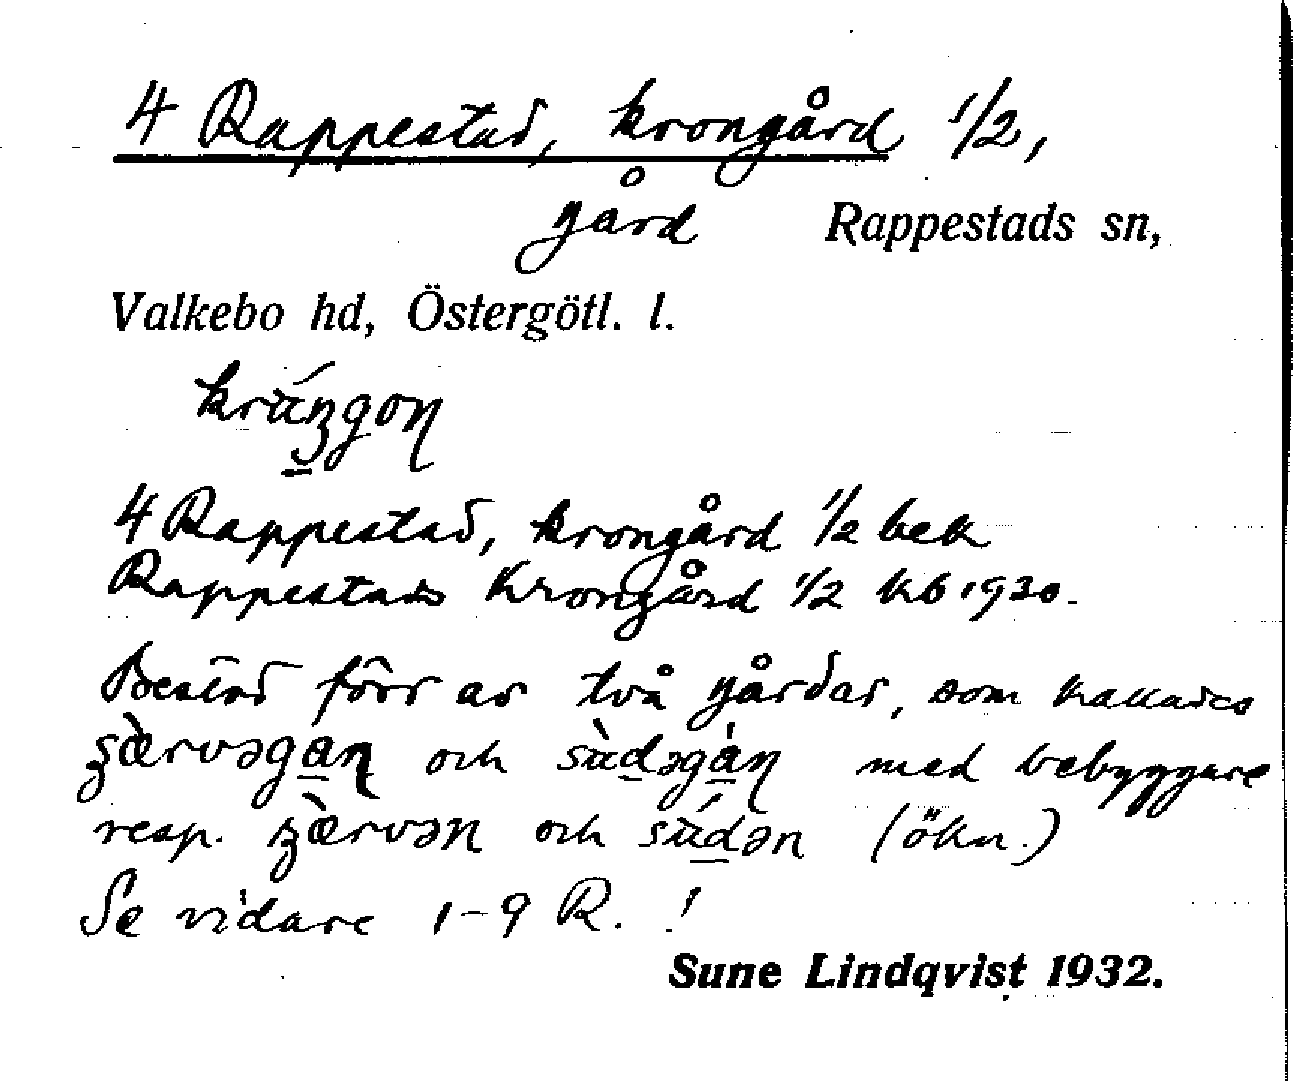 4 Rappestad, krongård 1/2,
gård Rappestads sn,
Valkebo hd, Östergötl. l.
4 Rappestad, krongård 1/2 bek
Rappestads Krongård 1/2 kb 1930.
Bestod förr av två gårdar, som kallades
och med bebyggare
resp. och (ökn.)
Se vidare 1-9 R. !
Sune Lindqvist 1932.